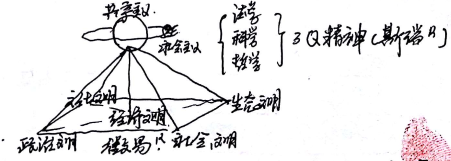 共享主义
社会主义
法学
科学
哲学
3Q精神(斯瑞R)
文化文明
生态文明
经济文明
政治文明
社会文明